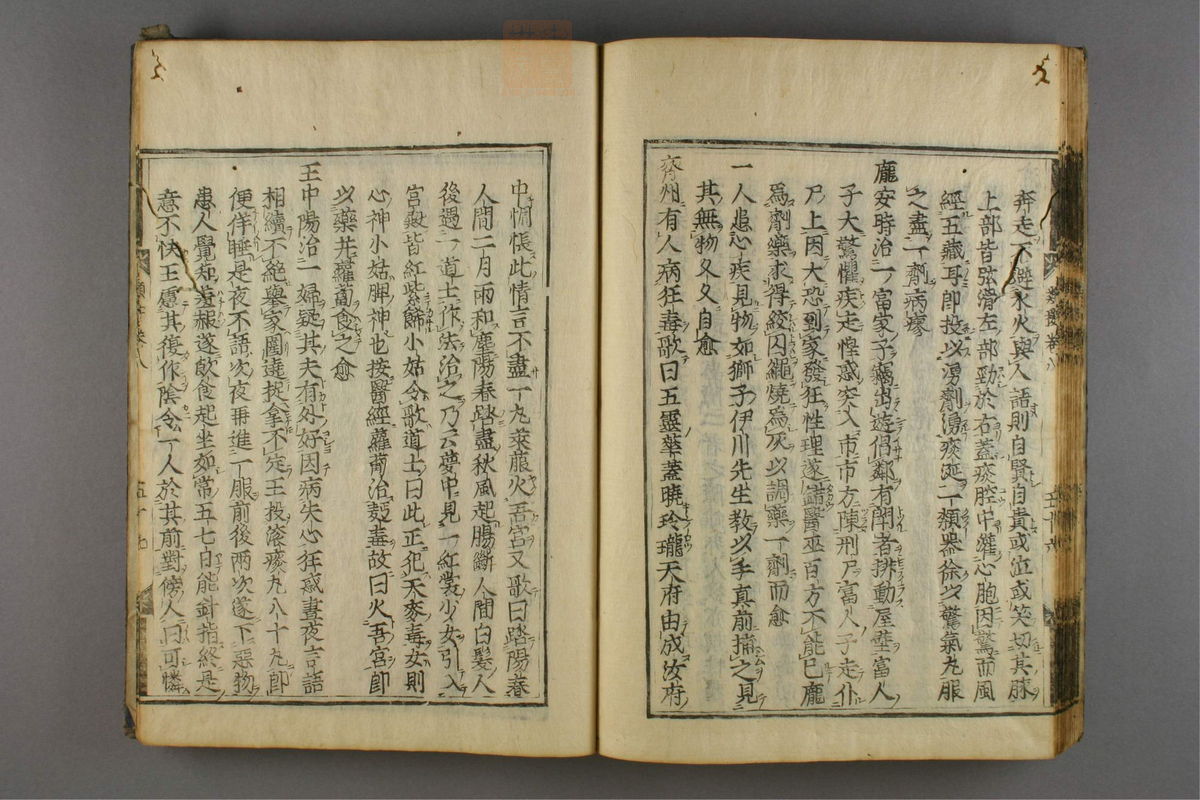 奔走不避水火與人語則自賢自貴或泣或笑切其脉
上部皆弦滑左部勁於右蓋痰腔中灌心胞因驚而風
經五藏耳即投以湧劑湧痰涎一類器徐以驚氣丸服
之盡一劑病瘳
龐安時治一富家子竊出遊倡鄰有鬥者排動屋壁富人
子大驚懼疾走惶惑突入市市方陳刑尸富人子走仆
尸上因大恐到家發狂性理遂錯醫巫百方不能已龐
爲劑藥求得絞囚繩燒爲灰以調藥一劑而愈
一人患心疾見物如獅子伊川先生教以手直前捕之見
其無物久久自愈
齊州有人病狂毒歌曰五靈華蓋曉玲瓏天府由成汝府
中惆悵此情言不盡一丸萊菔火吾宮又歌曰踏陽春
人間二月雨和塵陽春踏盡秋風起腸斷人間白髮人
後遇一道士作法治之乃云夢中見一紅裳少女引入
宮殿皆紅紫餙小姑令歌道士曰此正犯天麥毒女則
心神小姑脾神也按醫經蘿蔔治麪毒故曰火吾宮即
以藥并蘿蔔食之愈
王中陽治一婦疑其夫有外好因病失心狂惑晝夜言語
相續不絕舉家圍遶捉拿不定王投滾痰丸八十丸即
便佯睡是夜不語次夜再進一服前後兩次遂下惡物
患人覺知羞赧遂飲食起坐如常五七日能針指終是
意不快王慮其復作陰令一人於其前對傍人曰可憐